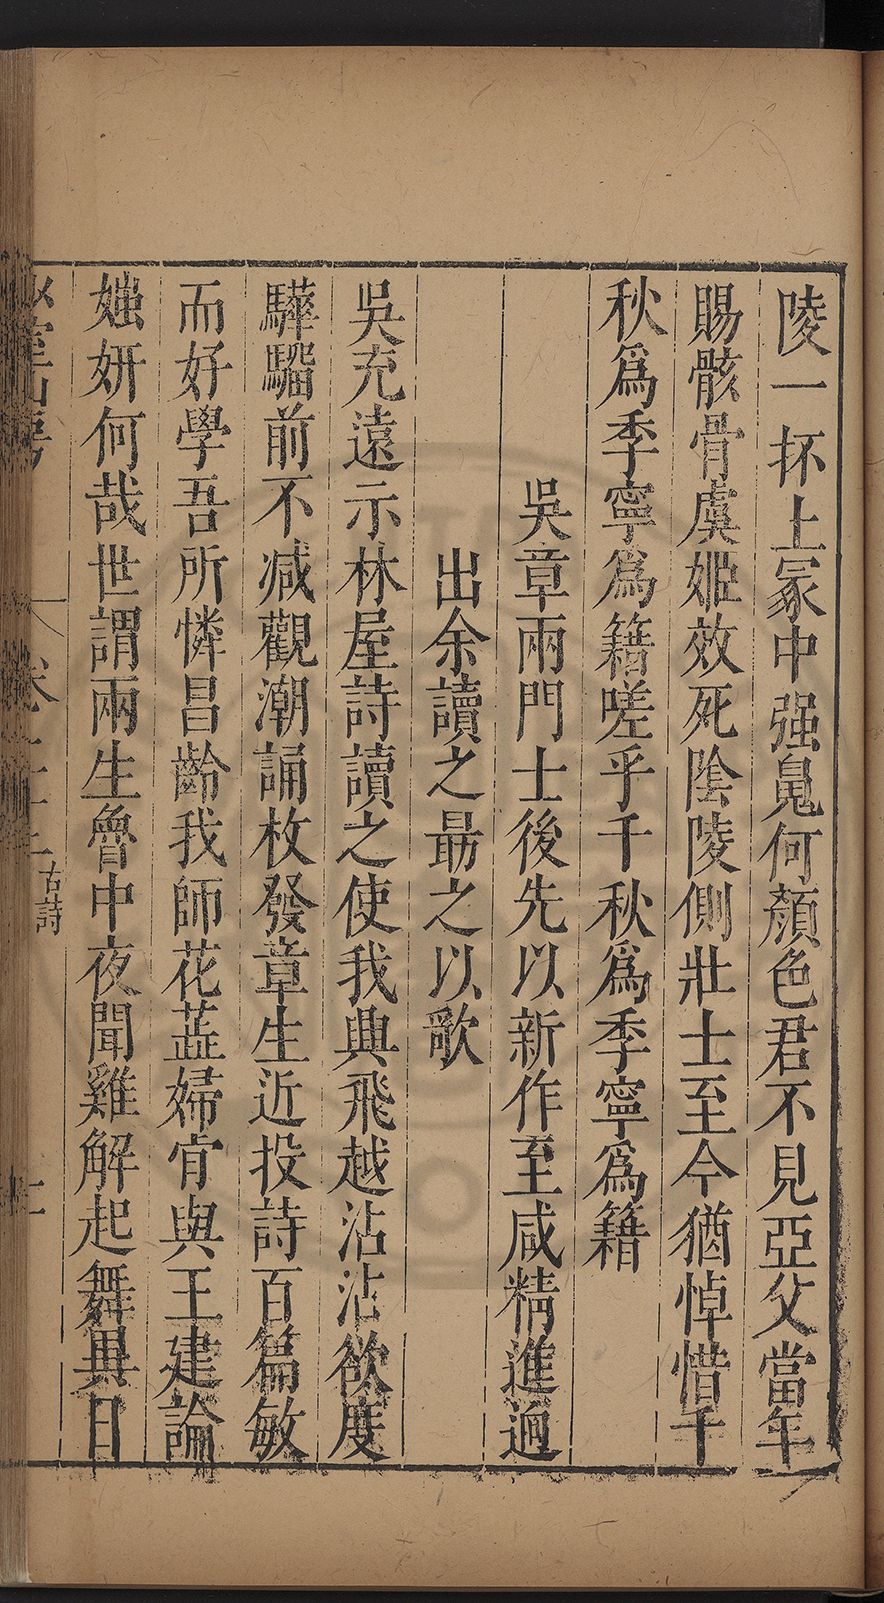 陵一抔土冢中强䰟何顏色君不見亞父當年
賜骸骨虞姬效死陰陵側壯士至今猶悼惜千
秋爲季寧爲籍嗟乎千秋爲季寧爲籍
吳章兩門士後先以新作至咸精進逈
出余讀之最之以歌
吳充遠示林屋詩讀之使我興飛越沾沾欲度
驊騮前不减觀潮誦枚發章生近投詩百篇敏
而好學吾所憐昌齡我師花蕋婦肯與王建論
媸妍何哉世謂兩生魯中夜聞雞解起舞異日
山房
卷
古詩